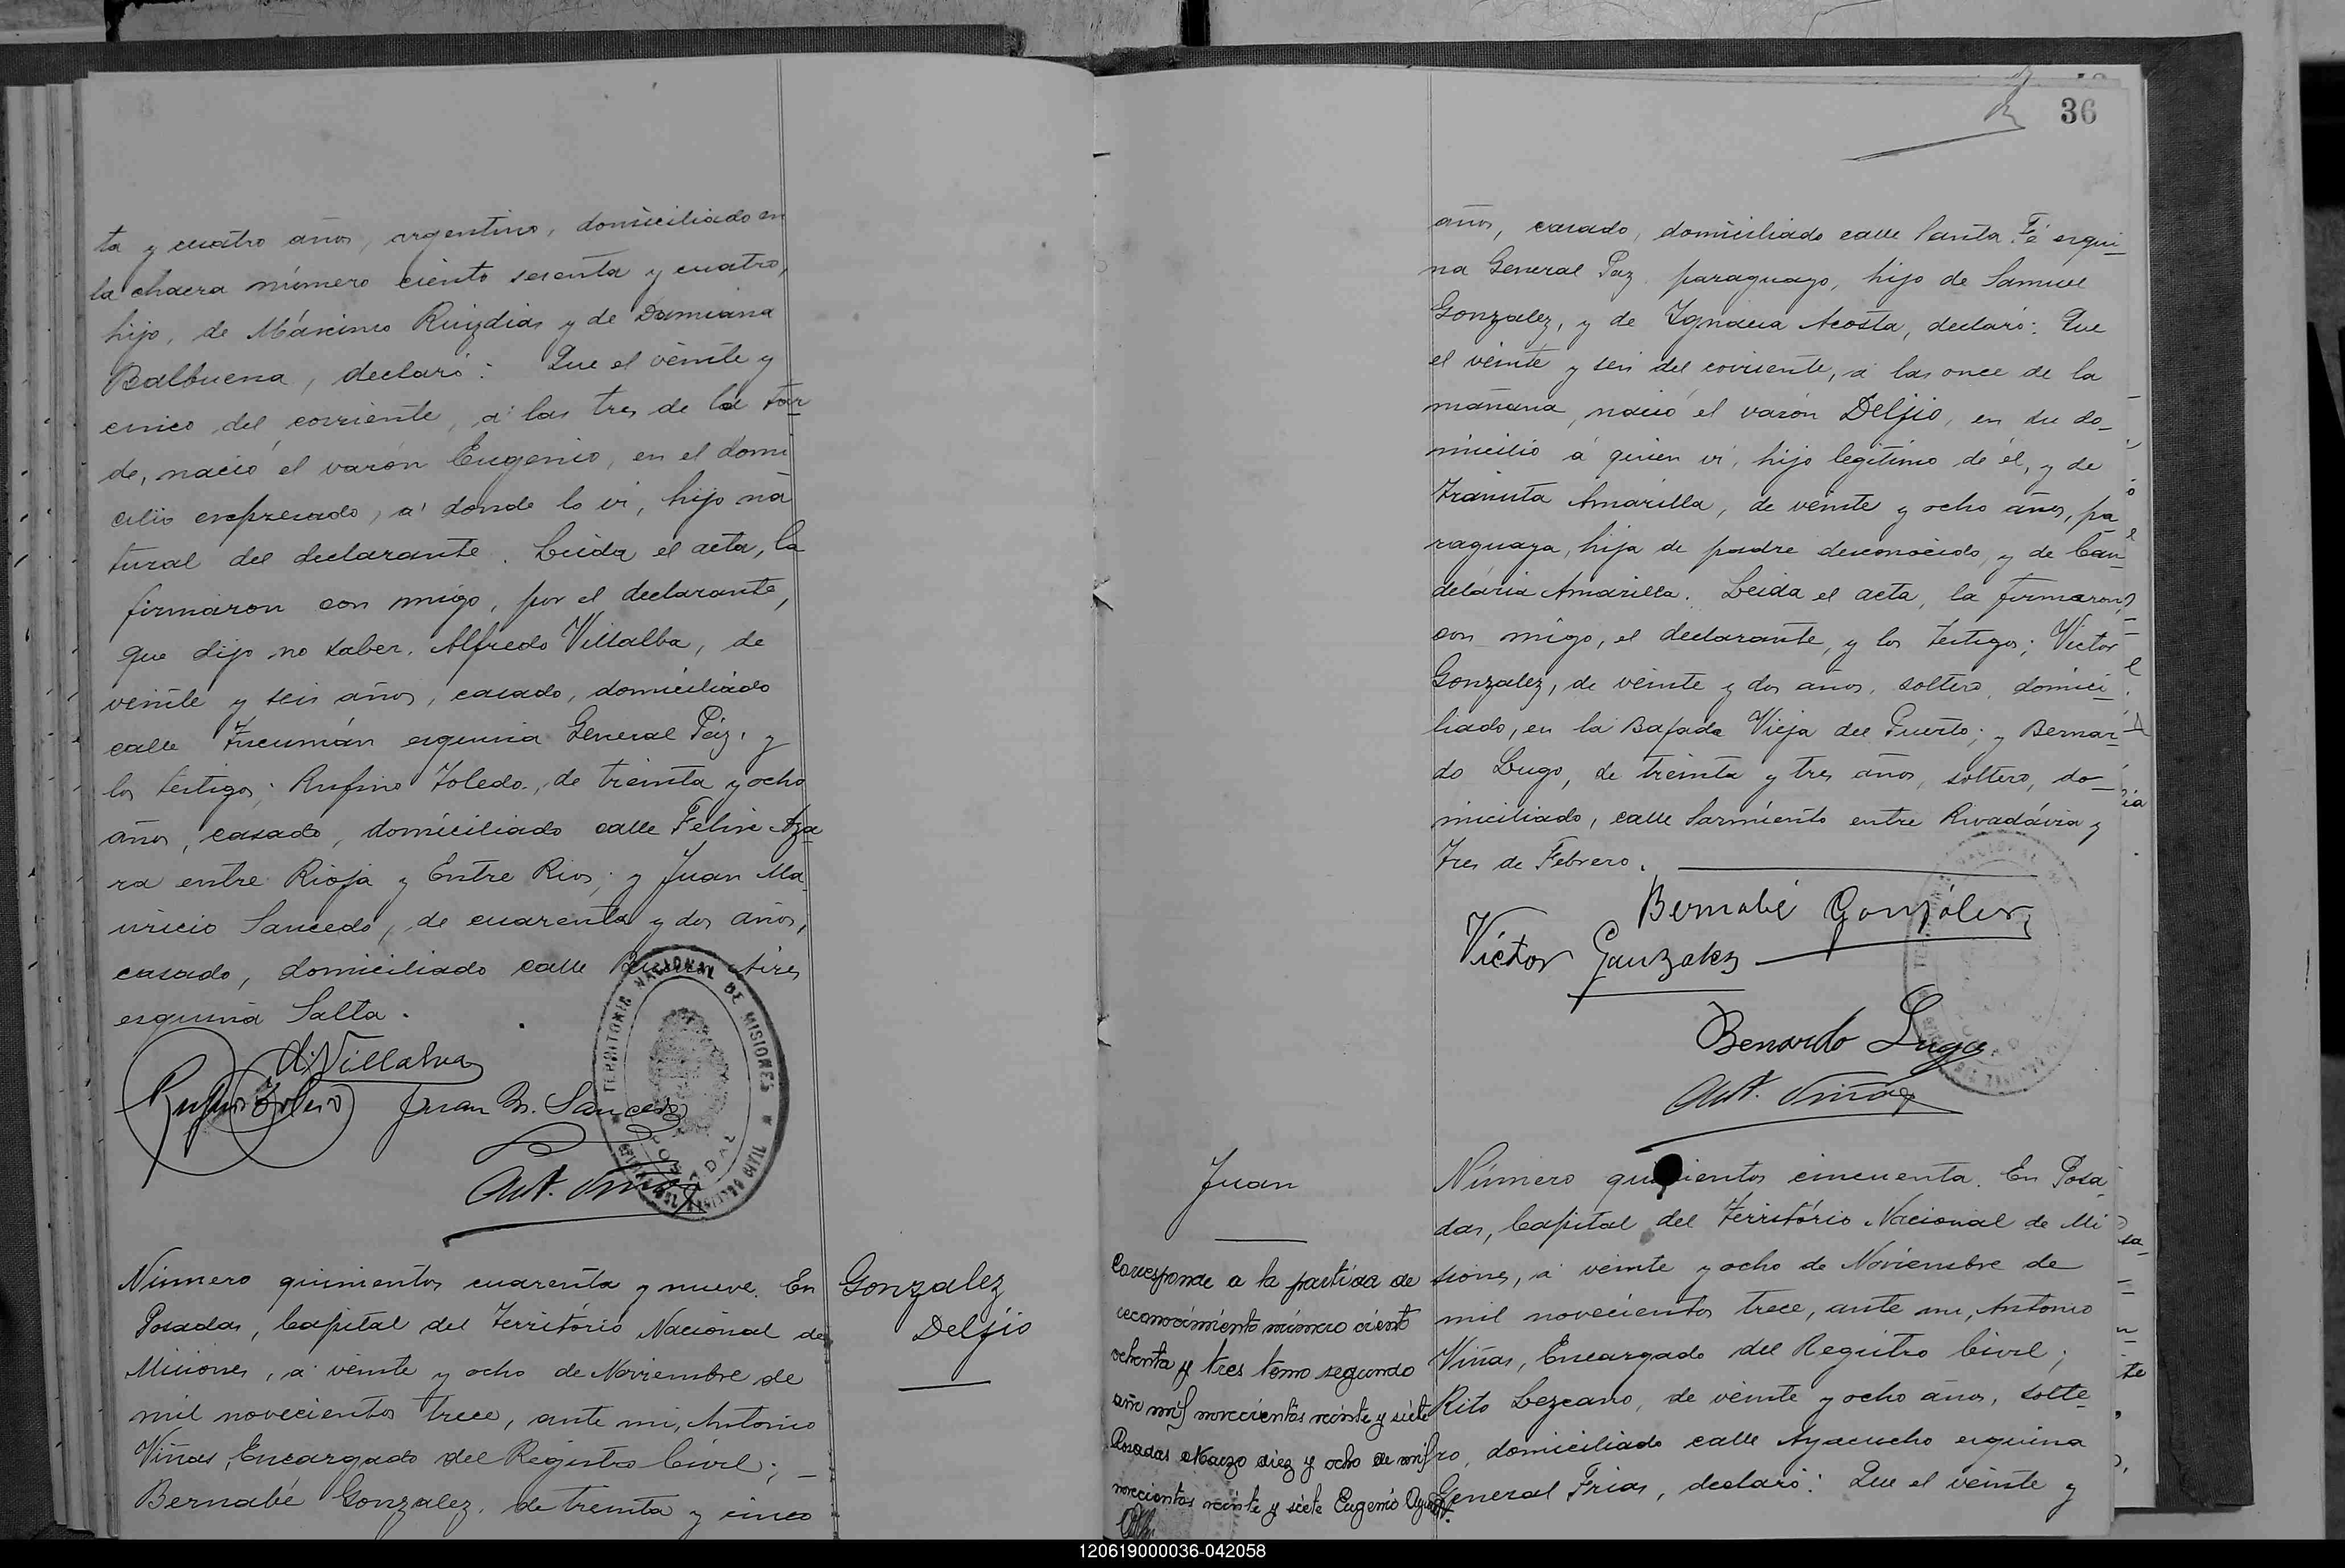 ta y cuatro años, argentino, domiciliado en
la chacra número ciento sesenta y cuatro,
hijo, de Máximo Ruizdias y de Damiana
Balbuena, declaró: Que el veinte y
cinco del corriente, a las tres de la tar-
de, nació el varón Eugenio, en el domi
cilio expresado, a donde lo vi, hijo na
tural del declarante. Leida el acta, la
firmaron con migo, por el declarante,
que dijo no saber, Alfredo Villalba, de
veinte y seis años, casado, domiciliado
calle Tucumán esquina General Páz, y
los testigos; Rufino Toledo, de treinta y ocho
años, casado, domiciliado calle Felix Aza-
ra entre Rioja y Entre Rios; y Juan Ma-
uricio Saucedo, de cuarenta y dos años,
casado, domiciliado calle Buenos Aires
esquina Salta.
A. Villalva
Rufino Toledo Juan M. Saucedo
Ant. Viñas
TERRITORIO NACIONAL DE MISIONES
REGISTRO CIVIL
POSADAS
Número quinientos cuarenta y nueve. En
Posadas, Capital del Território Nacional de
Misiones, a veinte y ocho de Noviembre de
mil novecientos trece, ante mi, Antonio
Viñas, Encargado del Registro Civil; —
Bernabé Gonzalez, de treinta y cinco
Gonzalez
Delfio
36
años, casado, domiciliado calle Santa Fé esqui-
na General Paz, paraguayo, hijo de Samuel
Gonzalez, y de Ygnacia Acosta, declaró: Que
el veinte y seis del corriente, a las once de la
mañana, nació el varón Delfio, en su do-
micilio á quien vi, hijo legitimo de él, y de
Transita Amarilla, de veinte y ocho años, pa
raguaya, hija de padre desconocido, y de Can-
delaria Amarilla. Leida el acta, la firmaron
con migo, el declarante, y los testigos; Victor
Gonzalez, de veinte y dos años, soltero, domici-
liado, en la Bajada Vieja del Puerto; y Bernar-
do Lugo, de treinta y tres años, soltero, do-
miciliado, calle Sarmiento entre Rivadávia y
Tres de Febrero.
Bernabé González
Victor Gauzalez
Benardo Lugo
Ant. Viñas
Juan
Corresponde a la partida de
reconocimiento número ciento
ochenta y tres tomo segundo
año mil novecientos veinte y siete
Posadas Marzo diez y ocho de mil
novecientos veinte y siete Eugenio
Número quinientos cincuenta. En Posa
das, Capital del Território Nacional de Mi
siones, a veinte y ocho de Noviembre de
mil novecientos trece, ante mi, Antonio
Viñas, Encargado del Registro Civil;
Rito Lezcano, de veinte y ocho años, solte-
ro, domiciliado calle Ayacucho esquina
General Frias, declaró: Que el veinte y
120619000036-042058